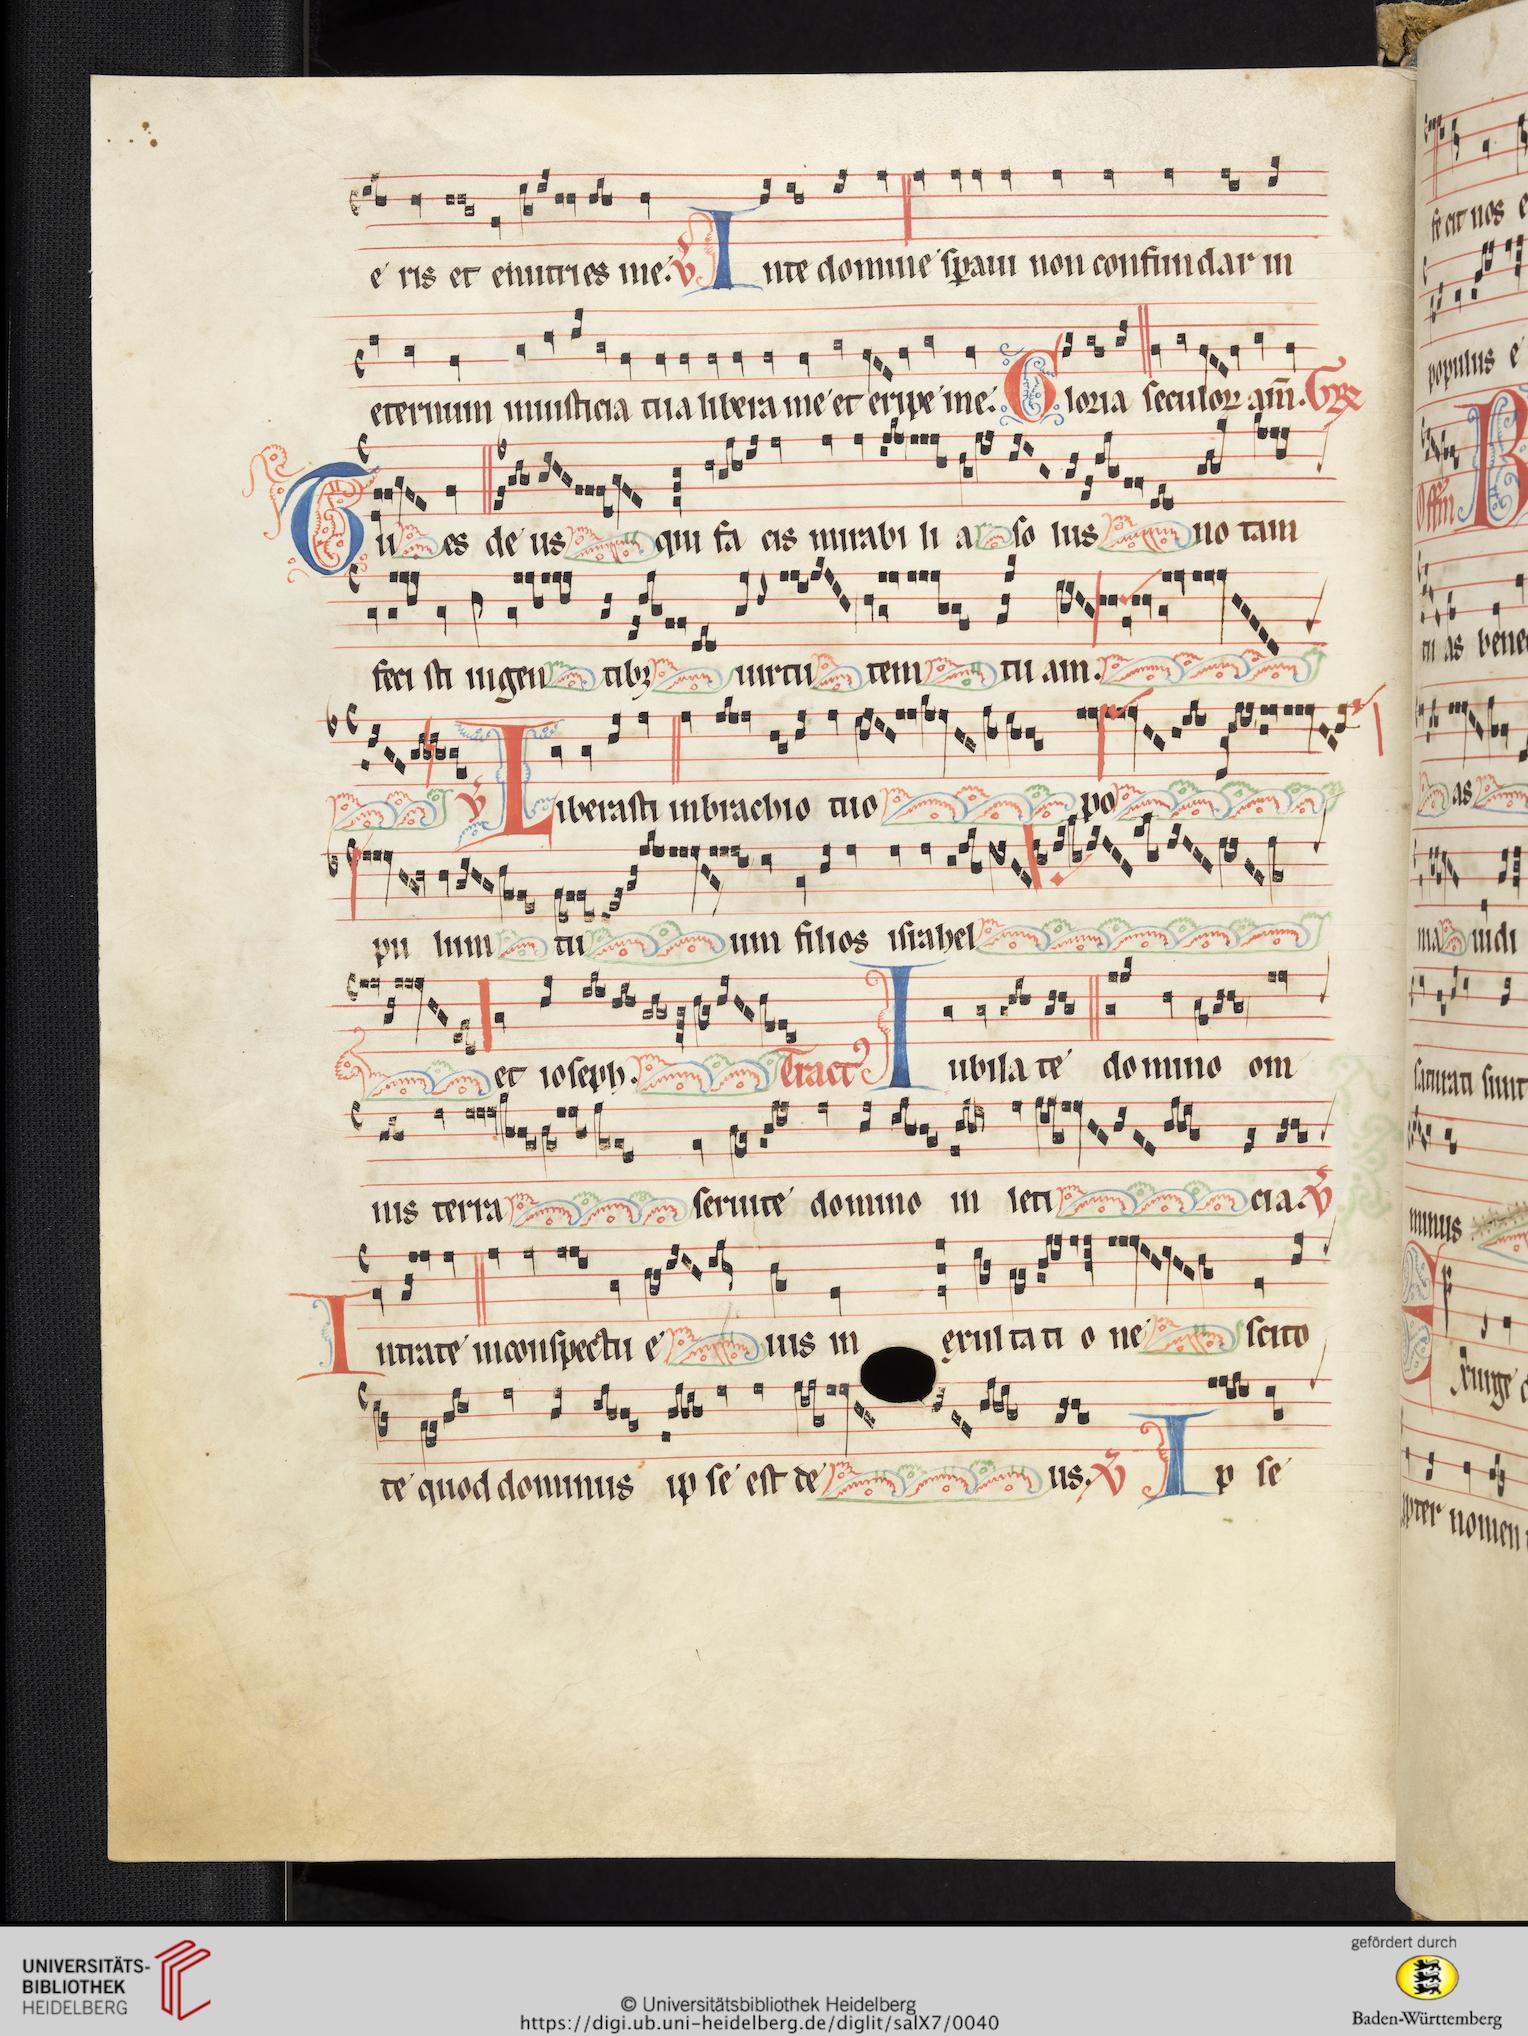 e ris et enutries me. V̄ In te domine speraui non confundar in
eternum iniusticia tua libera me et eripe me. Gloria seculorꝝ am̄. Gꝛ̄
Tu es de us qui fa cis mirabi li a so lus no tam
feci sti in gen tibꝫ uirtu tem tu am.
V̄ Liberasti in brachio tuo po
pu lum tu um filios israhel
et ioseph. Tractꝰ Iubila te domino om
nis terra seruite domino in leti cia. V̄
Intrate in conspectu e ius in exul ta ti o ne scito
te quod dominus ip se est de us. V̄ Ip se
fe cit nos e
populus e
Offm̄
tu as bene
as
ma ndi
saturati sunt
minus
xurge
pter nomen
UNIVERSITÄTS-
BIBLIOTHEK
HEIDELBERG
© Universitätsbibliothek Heidelberg
https://digi.ub.uni-heidelberg.de/diglit/salX7/0040
gefördert durch
Baden-Württemberg